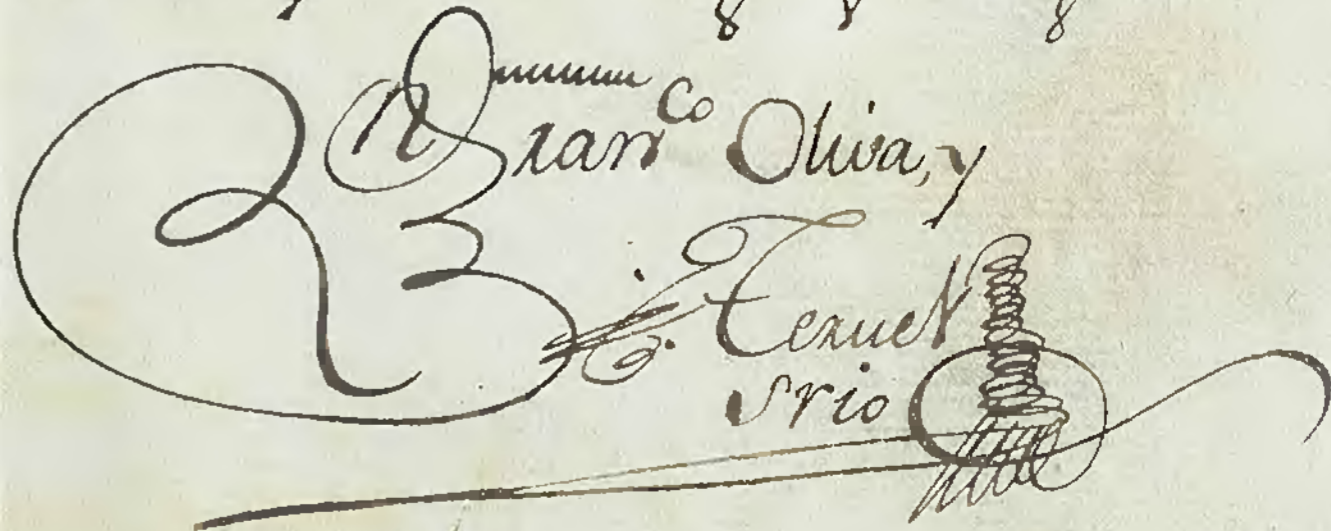 Fran^co Oliva, y
Teruel
srio